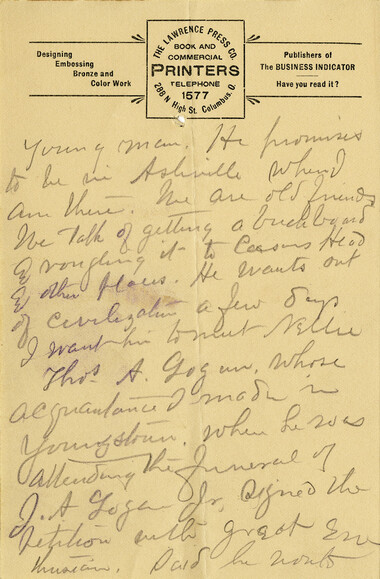 Designing
Embossing
Bronze and
Color Work
THE LAWRENCE PRESS CO.
BOOK AND
COMMERCIAL
PRINTERS
TELEPHONE
1577
288 N High St. Columbus, O.
Publishers of
The BUSINESS INDICATOR
Have you read it?
Young man. He promises
to be in Ashville when I
am there. We are old friends
We talk of getting a buckboard
& roughing it to Caesars Head
& other places. He wants out
of civilization a few days
I want him to meet Nellie
Thos. A. Logan, whose
acquaintance I made in
Youngstown, when he was
attending the funeral of
J. A Logan Jr, signed the
Petition with great
Said he